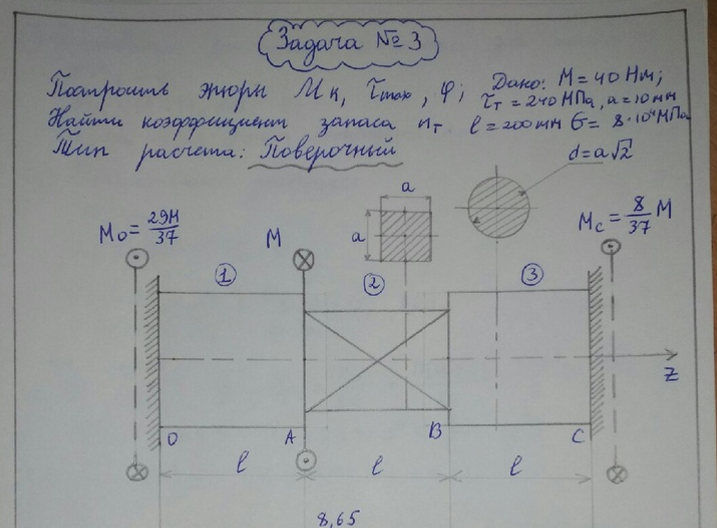 Задача № 3
Построить эпюры Mк, τmax, φ; Дано: M = 40 Нм;
τт = 240 МПа, a = 10 мм
Найти коэффициент запаса nт l = 200 mm G = 8·10⁴ МПа
Тип расчета: Поверочный
d = a√2
a
a
Mo = 29M/37
M
Mc = 8/37 M
1
2
3
z
O
A
B
C
l
l
l
8,65